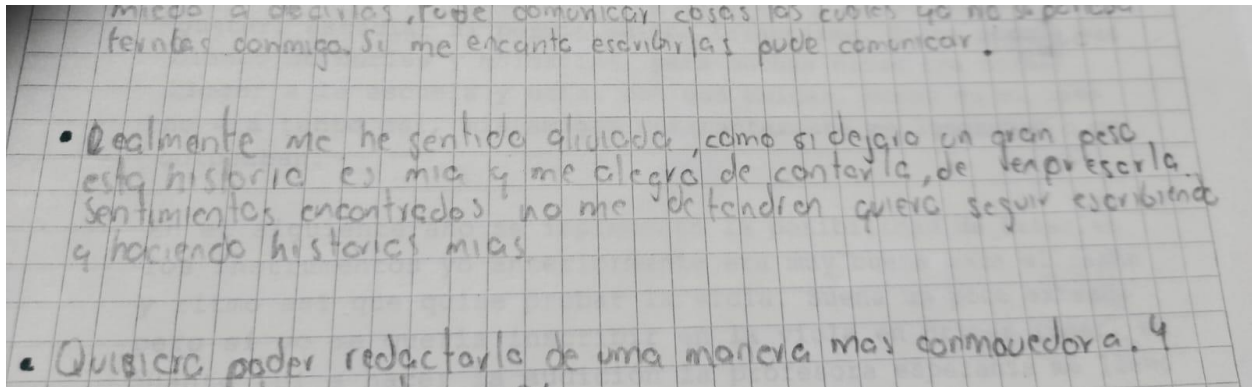 miedo a decirlas, pude comunicar cosas las cuales ya no
conmigo. Si me encanto escribirlas pude comunicar.
• Realmente me he sentido aliviada, como si dejaro un gran peso
esta historia es mia y me alegro de contarla, de
Sentimientos encontrados no me detendran quiero seguir escribiendo
y haciendo historias mias
• Quisiera poder redactarla de una manera mas conmovedora. y